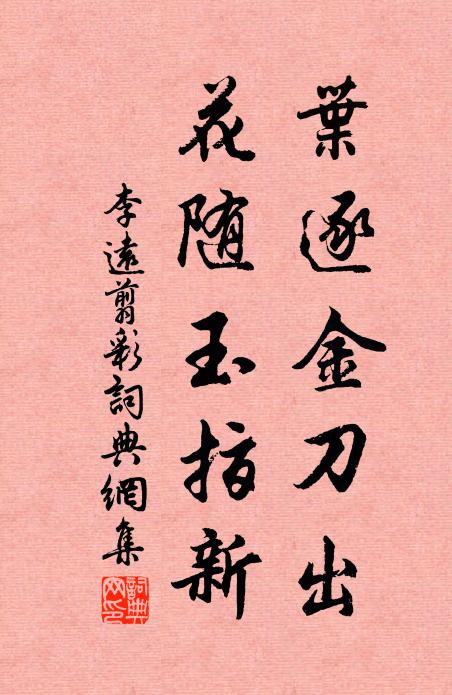 葉逐金刀出
花随玉指新
李遠剪彩詞典網集
詞典
网印